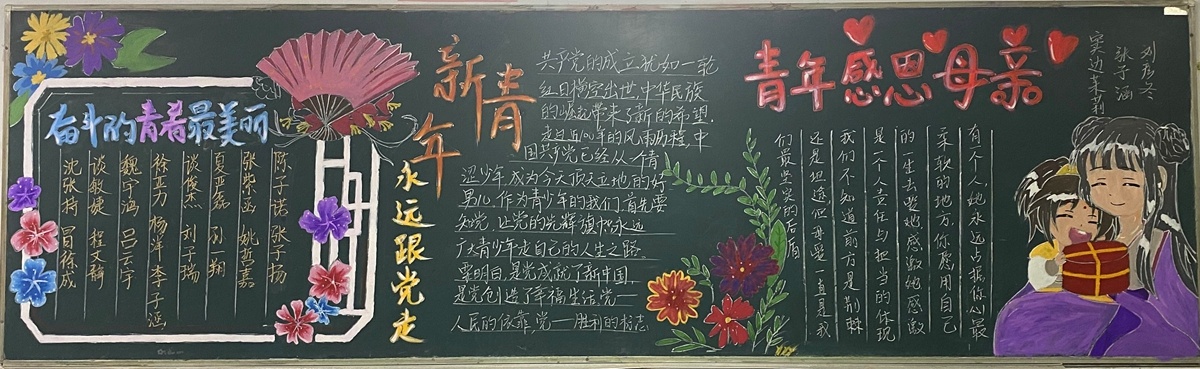 奋斗的青春最美丽
陈子诺 张子扬
张荣函 姚哲嘉
夏亚磊 孙翔
谈俊杰 刘子瑞
徐亚力 杨洋 李子涵
魏宇涵 吕云宇
谈敏婕 程文静
沈张持 冒徐成
新青年
永远跟党走
共产党的成立犹如一轮
红日横空出世,中华民族
的崛起带来了新的希望,
走过近100年的风雨历程,中
国共产党已经从一个青
涩少年,成为今天顶天立地的好
男儿,作为青少年的我们首先要
知党,让党的光辉旗帜永远
广大青少年走自己的人生之路。
要明白,是党成就了新中国,
是党创造了幸福生活,党一
人民的依靠,党一胜利的标志
青年感恩母亲
刘彦冬
张子涵
实边茉莉
有个人她永远占据你心最
柔软的地方,你愿用自己
的一生去爱她感激她感激
是一个人责任与担当的体现
我们不知道前方是荆棘
还是坦途但母爱一直是我
们最坚实的后盾